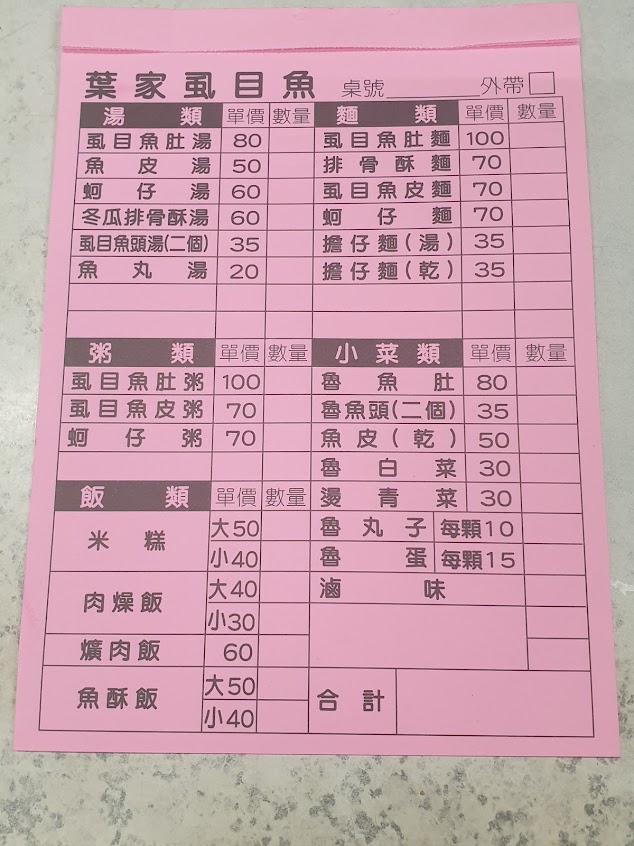 葉家虱目魚 桌號 外帶
湯類 單價 數量
虱目魚肚湯 80
魚皮湯 50
蚵仔湯 60
冬瓜排骨酥湯 60
虱目魚頭湯(二個) 35
魚丸湯 20
麵類 單價 數量
虱目魚肚麵 100
排骨酥麵 70
虱目魚皮麵 70
蚵仔麵 70
擔仔麵(湯) 35
擔仔麵(乾) 35
粥類 單價 數量
虱目魚肚粥 100
虱目魚皮粥 70
蚵仔粥 70
飯類 單價 數量
米糕 大50
小40
肉燥飯 大40
小30
爌肉飯 60
魚酥飯 大50
小40
小菜類 單價 數量
魯魚肚 80
魯魚頭(二個) 35
魚皮(乾) 50
魯白菜 30
燙青菜 30
魯丸子 每顆10
魯蛋 每顆15
滷味
合計